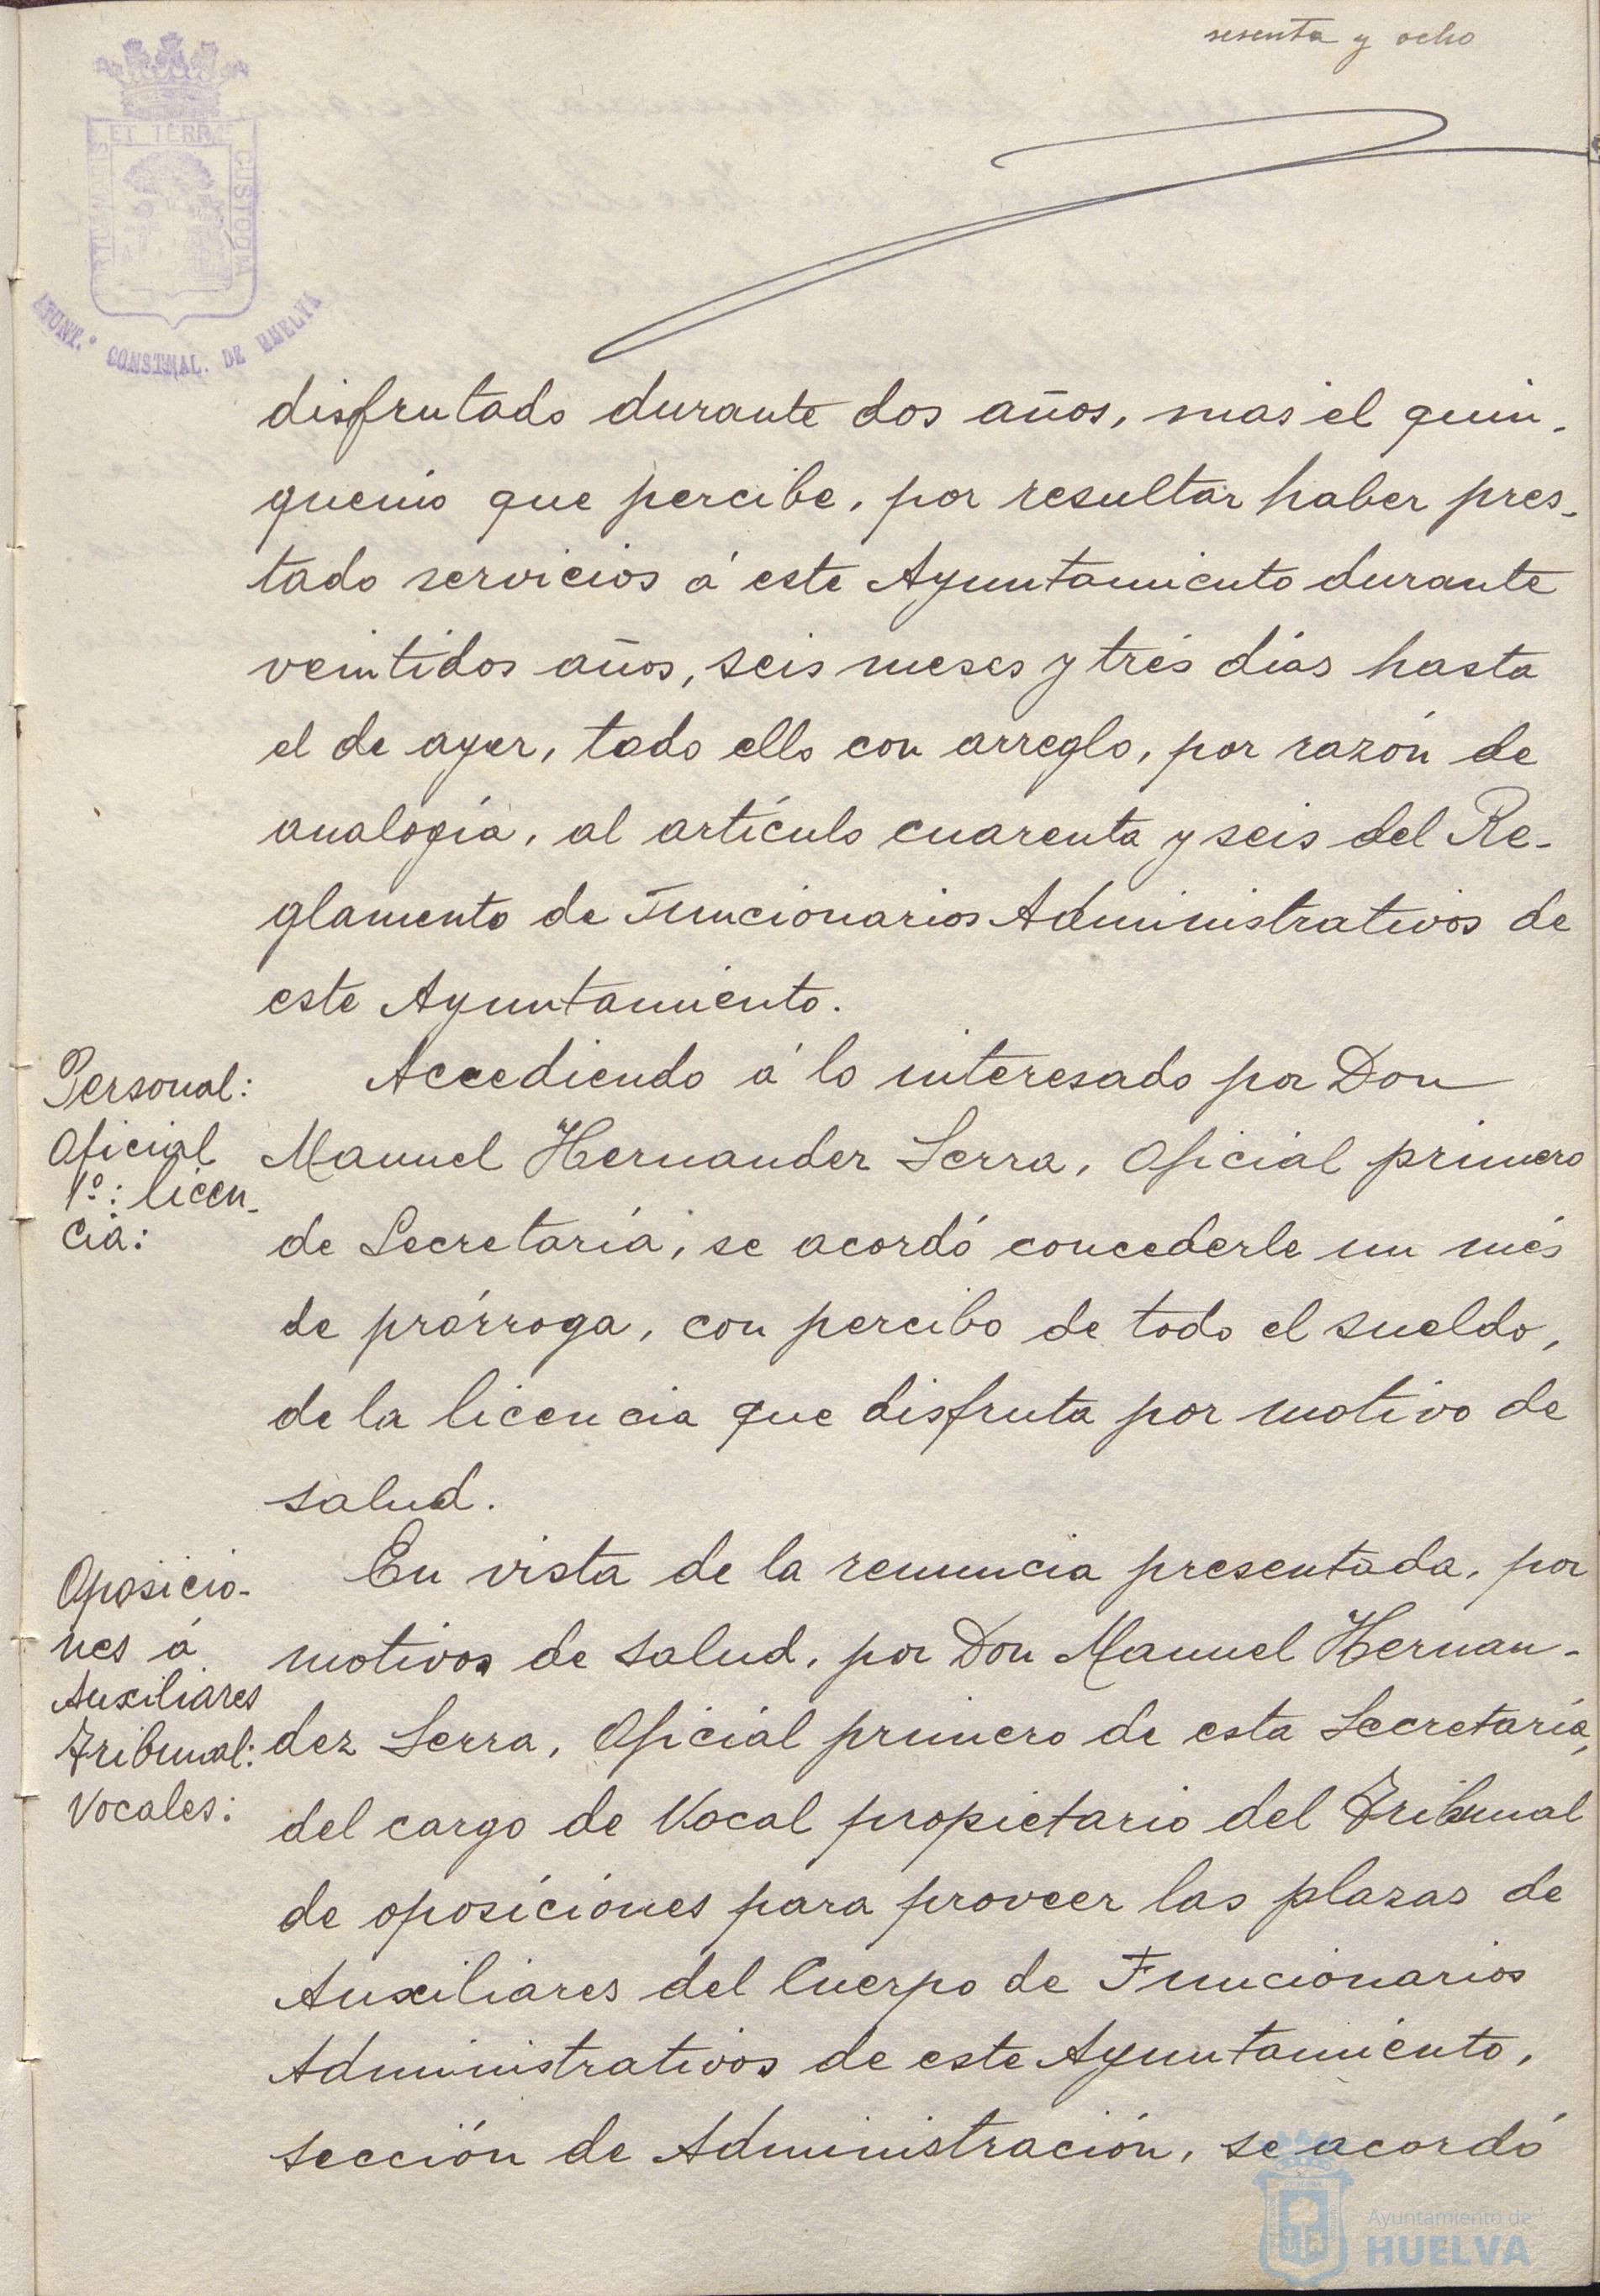 sesenta y ocho
ET TERRÆ
CUSTODIA
AYUNT.º CONSTNAL. DE HUELVA
disfrutado durante dos años, mas el quin-
quenio que percibe, por resultar haber pres-
tado servicios á este Ayuntamiento durante
veintidos años, seis meses y trés días hasta
el de ayer, todo ello con arreglo, por razón de
analogía, al artículo cuarenta y seis del Re-
glamento de Funcionarios Administrativos de
este Ayuntamiento.
Personal:
Oficial
1º: licen-
cia:
Accediendo á lo interesado por Don
Manuel Hernander Serra, Oficial primero
de Secretaría, se acordó concederle un més
de prórroga, con percibo de todo el sueldo,
de la licencia que disfruta por motivo de
salud.
Oposicio-
nes á
Auxiliares
Tribunal:
Vocales:
En vista de la renuncia presentada, por
motivos de salud, por Don Manuel Hernan-
dez Serra, Oficial primero de esta Secretaría,
del cargo de Vocal propietario del Tribunal
de oposiciones para proveer las plazas de
Auxiliares del Cuerpo de Funcionarios
Administrativos de este Ayuntamiento,
sección de Administración, se acordó
Ayuntamiento de
HUELVA